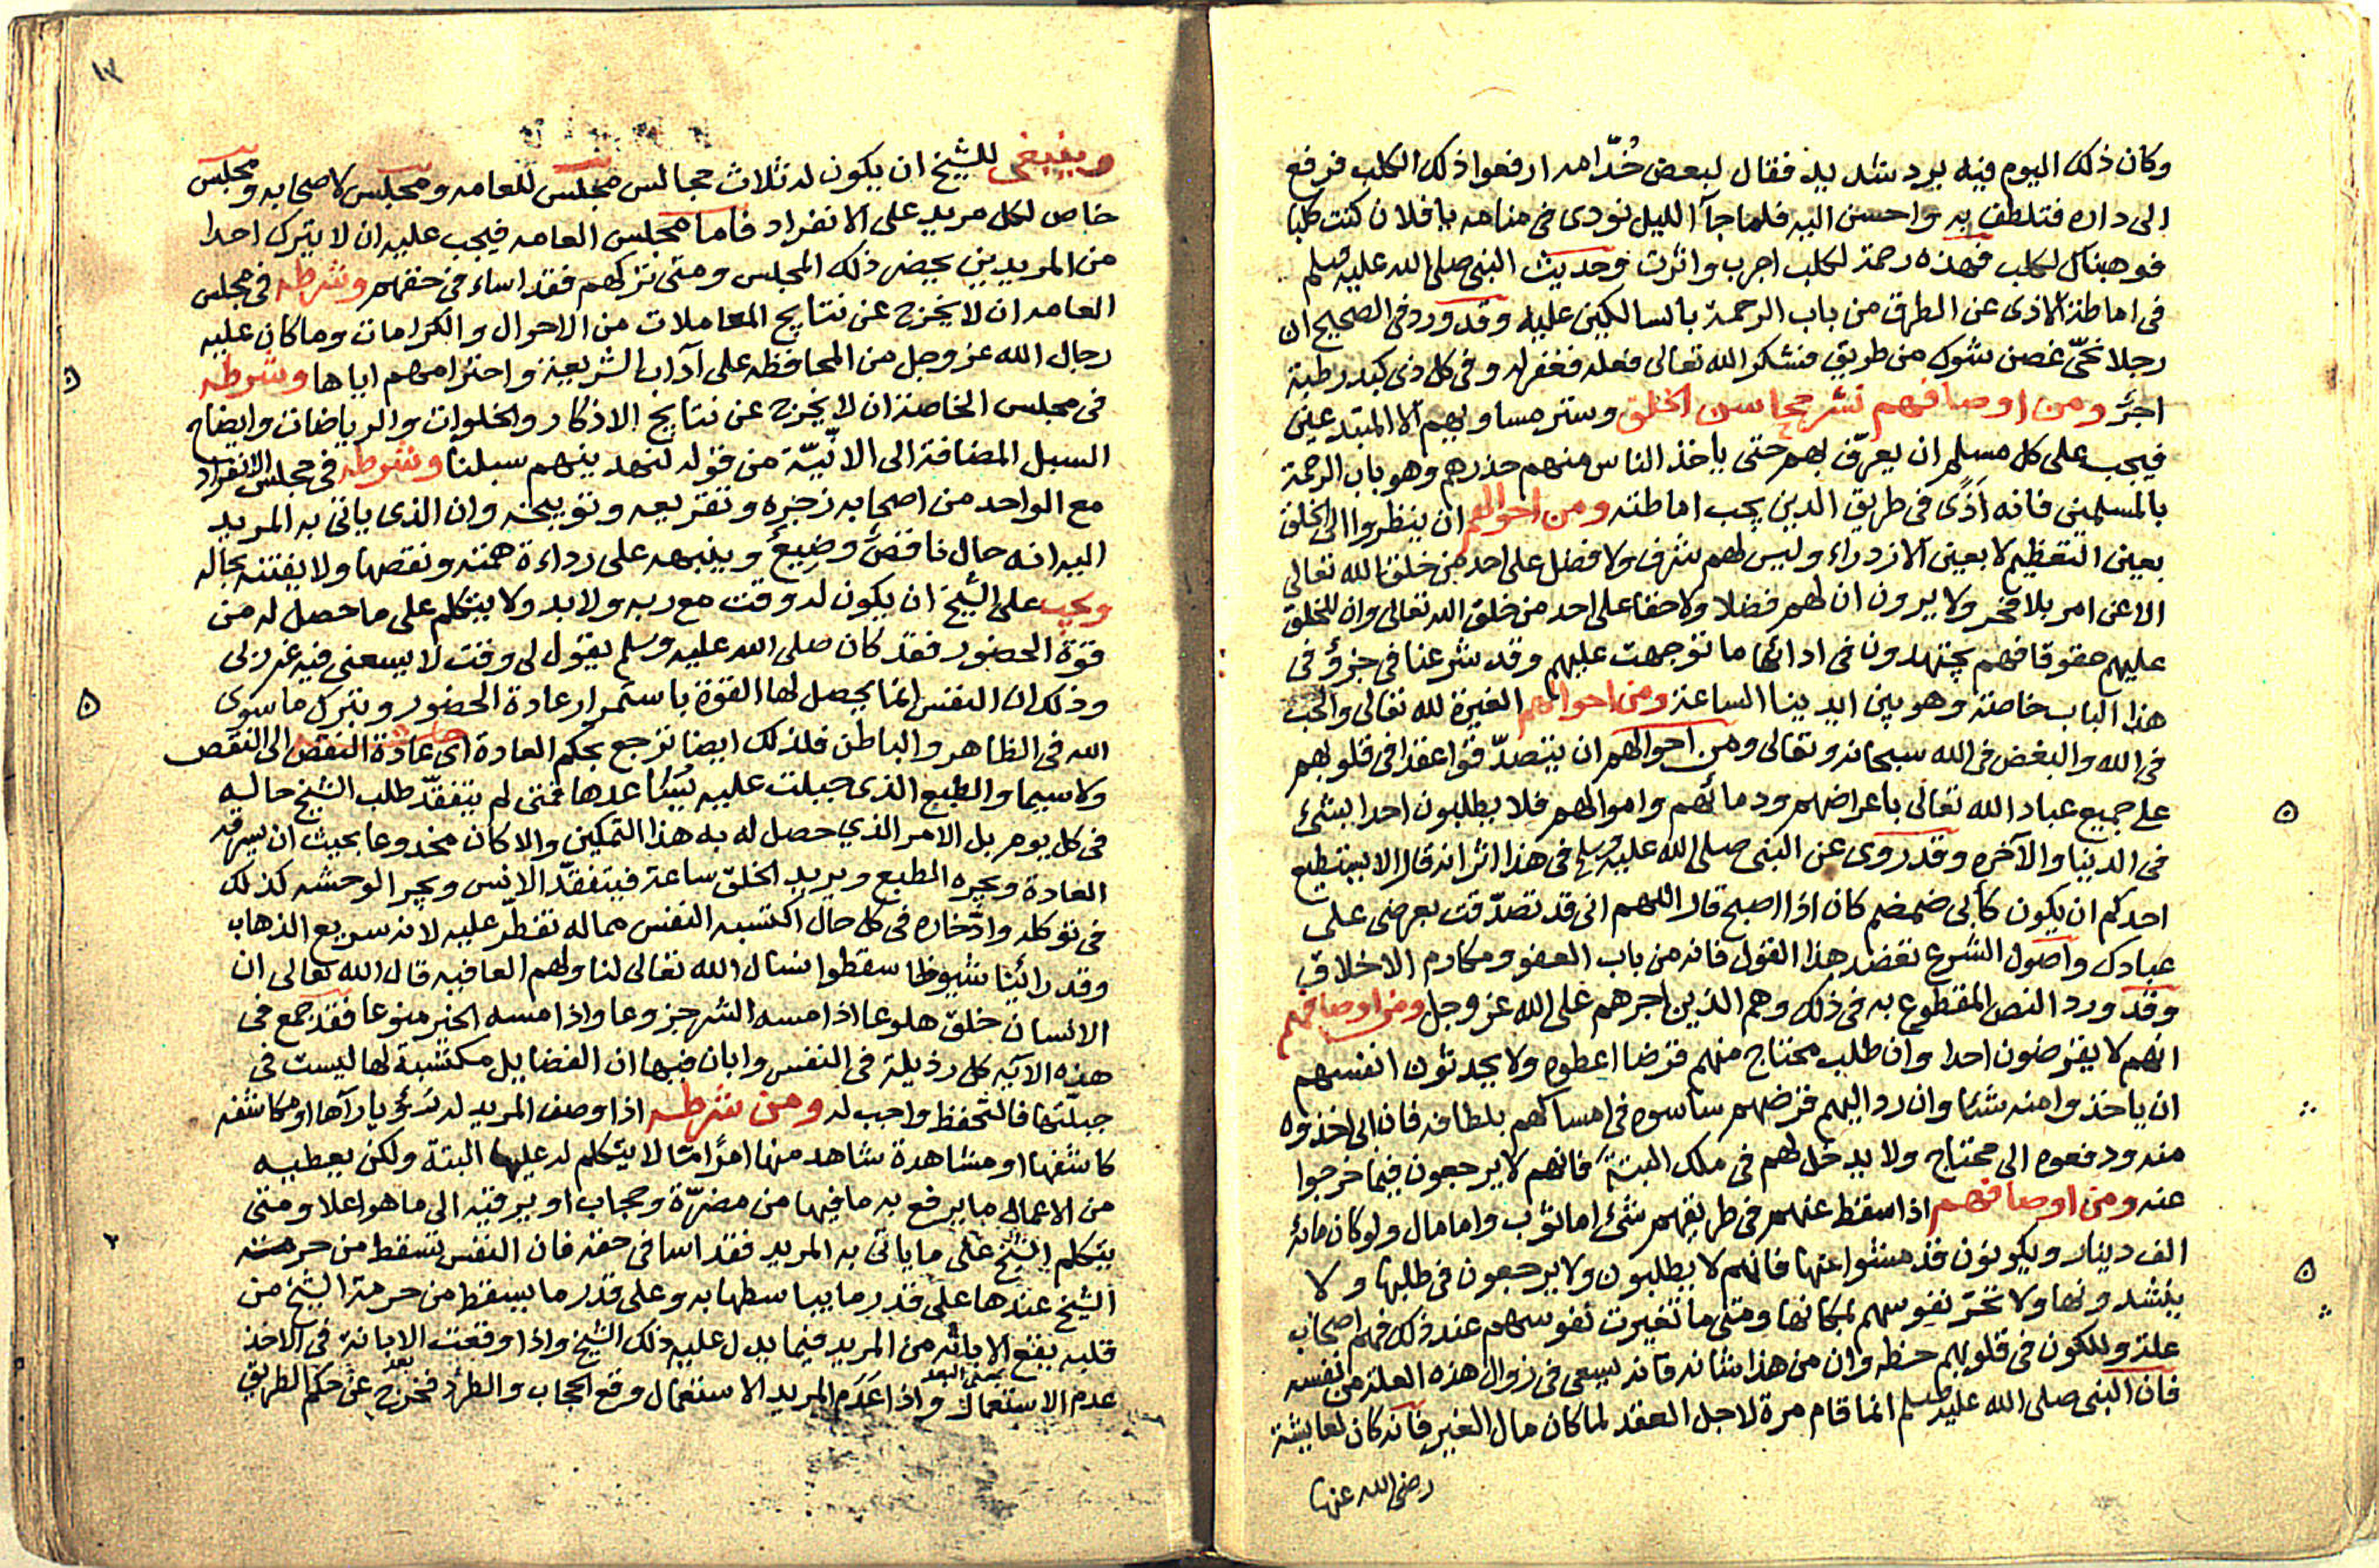 وكان ذلك اليوم فيه برد شديد فقال لبعض خُدّامه ارفعوا ذلك الكلب فرفع
الى داره فتلطف به واحسن اليه فلما جآ الليل نودى فى منامه يا فلان كنت كلبا
فوهبناك لكلب فهذه رحمة لكلب اجرب واثرت وحديث النبى صلى الله عليه وسلم
فى اماطة الاذى عن الطرق من باب الرحمة بالسالكين عليه وقد ورد فى الصحيح ان
رجلا نحّى غصن شوك من طريق فشكر الله تعالى فعله فغفر له وفى كل ذى كبد رطبة
اجرٌ ومن اوصافهم نشر محاسن الخلق وستر مساويهم الا المبتدعين
فيجب على كل مسلم ان يعرّف بهم حتى ياخذ الناس منهم حذرهم وهو باب الرحمة
بالمسلمين فانه اذًى فى طريق الدين يجب اماطته ومن احوالهم ان ينظروا الى الخلق
بعين التعظيم لا بعين الازدراء وليس لهم شرف ولا فضل على احد من خلق الله تعالى
الا عن امر بلا فخر ولا يرون ان لهم فضلا ولا حقا على احد من خلق الله تعالى وان للخلق
عليهم حقوقا فهم يجتهدون فى ادائها ما توجهت عليهم وقد شرعنا فى جزؤ فى
هذا الباب خاصة وهو بين ايدينا الساعة ومن احوالهم الغيرة لله تعالى والحب
فى الله والبغض فى الله سبحانه وتعالى ومن احوالهم ان يتصدّقوا عقدا فى قلوبهم
على جميع عباد الله تعالى باعراضهم ودمائهم واموالهم فلا يطلبون احدا بشئ
فى الدنيا والآخره وقد روى عن النبى صلى الله عليه وسلم فى هذا اثر انه قال الا يستطيع
احدكم ان يكون كأبى ضمضم كان اذا اصبح قال اللهم انى قد تصدّقت بعرضى على
عبادك واصول الشرع تعضد هذا القول فانه من باب العفو ومكارم الاخلاق
وقد ورد النص المقطوع به فى ذلك وهم الذين اجرهم على الله عز وجل ومن اوصافهم
انهم لا يقرضون احدا وان طلب محتاج منهم قرضا اعطوه ولا يحدثون انفسهم
ان ياخذوا منه شئا وان رد اليهم قرضهم ساسوه فى امساكهم بلطافه فان ابى اخذوه
منه ودفعوه الى محتاج ولا يدخل لهم فى ملك البتةً فانهم لا يرجعون فيما خرجوا
عنه ومن اوصافهم اذا سقط عنهم فى طريقهم شئ اما ثوب واما مال ولو كان مائة
الف دينار ويكونون قد مشوا عنها فانهم لا يطلبون ولا يرجعون فى طلبها ولا
ينشدونها ولا تتحرّ نفوسهم لمكانها ومتى ما تغيرت نفوسهم عند ذلك فهم اصحاب
علة وللكون فى قلوبهم حظ وان من هذا شانه فانه يسعى فى زوال هذه العلة من نفسه
فان النبى صلى الله عليه وسلم انما قام مرة لاجل العقد لما كان مال الغير فانه كان لعايشة
رضى الله عنها
١٣
وينبغى للشيخ ان يكون له ثلاث مجالس مجلس للعامه ومجلس لاصحابه ومجلس
خاص لكل مريد على الانفراد فاما مجلس العامه فيجب عليه ان لا يترك احدا
من المريدين يحضر ذلك المجلس ومتى تركهم فقد اساء فى حقهم وشرطه فى مجلس
العامه ان لا يخرج عن نتايج المعاملات من الاحوال والكرامات وما كان عليه
رجال الله عز وجل من المحافظه على آداب الشريعة واحترامهم اياها وشرطه
فى مجلس الخاصة ان لا يخرج عن نتايج الاذكار والخلوات والرياضات وايضاح
السبل المضافة الى الانّيّة من قوله لنهدينهم سبلنا وشرطه فى مجلس الانفراد
مع الواحد من اصحابه زجره وتقريعه وتوبيخه وان الذى ياتى به المريد
اليه انه حال ناقصٌ وضيعٌ وينبهه على رداءة همته ونقصها ولا يفتنه بحاله
ويجب على الشيخ ان يكون له وقت مع ربه ولا بد ولا يتكلم على ما حصل له من
قوة الحضور فقد كان صلى الله عليه وسلم يقول لى وقت لا يسعنى فيه غير ربى
وذلك ان النفس انما يحصل لها القوة باستمرار عادة الحضور وتترك ما سوى
الله فى الظاهر والباطن فلذلك ايضا ترجع بحكم العادة اى عادة النقص الى النقص
ولا سيما والطبع الذى جبلت عليه يساعدها فمتى لم يتفقّد طلب الشيخ حاله
فى كل يوم بل الامر الذي حصل له به هذا التمكين والا كان مخدوعا بحيث ان يسرقه
العادة ويجره الطبع ويريد الخلق ساعة فيتفقّد الانس ويجر الوحشه كذلك
فى توكله وادّخاره فى كل حال اكتسبه النفس مما له تفطّر عليه لانه سريع الذهاب
وقد رائينا شيوخا سقطوا نسال الله تعالى لنا ولهم العافيه قال الله تعالى ان
الانسان خلق هلوعا اذا مسه الشر جزوعا واذا مسه الخير منوعا فقد جمع فى
هذه الآية كل رذيلة فى النفس وابان فيها ان الفضايل مكتسبة لها ليست فى
جبلّتها فالتحفظ واجب له ومن شرطه اذا وصف المريد له رؤيا رآها او مكاشفه
كاشفها او مشاهدة شاهد منها امرًا ما لا يتكلم له عليها البتة ولكن يعطيه
من الاعمال ما يرفع به ما فيها من مضرّة وحجاب او يرقيه الى ما هو اعلا ومتى
يتكلم الشيخ على ما ياتى به المريد فقد اسا فى حقه فان النفس تسقط من حرمته
الشيخ عندها على قدر ما يباسطها به وعلى قدر ما يسقط من حرمة الشيخ من
قلبه يقع الاباية من المريد فيما يدل عليه ذلك الشيخ واذا وقعت الاباية فى الاخذ
عدم الاستعمال واذا عدم المريد الاستعمال وقع الحجاب والطرد فخرج عن حكم الطريق